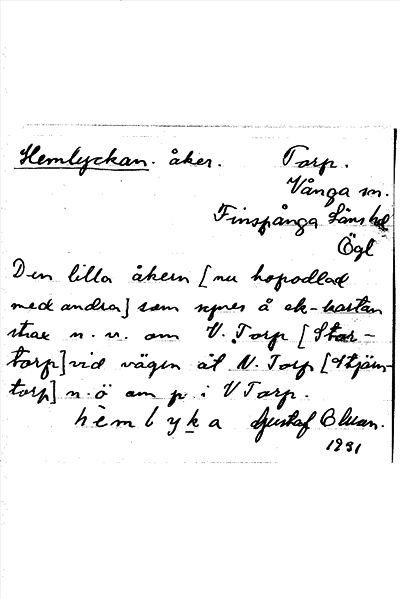 Hemlyckan. åker. Torp.
Vånga sn.
Finspånga läns hd
Ögl
Den lilla åkern [nu hopodlad
med andra] som synes å ek-kartan
strax n. v. om V. Torp [Stor-
torp] vid vägen åt N. Torp [Stjärn-
torp] n. ö om p. i V Torp.
hèmlyka Gustaf Bluan.
1931